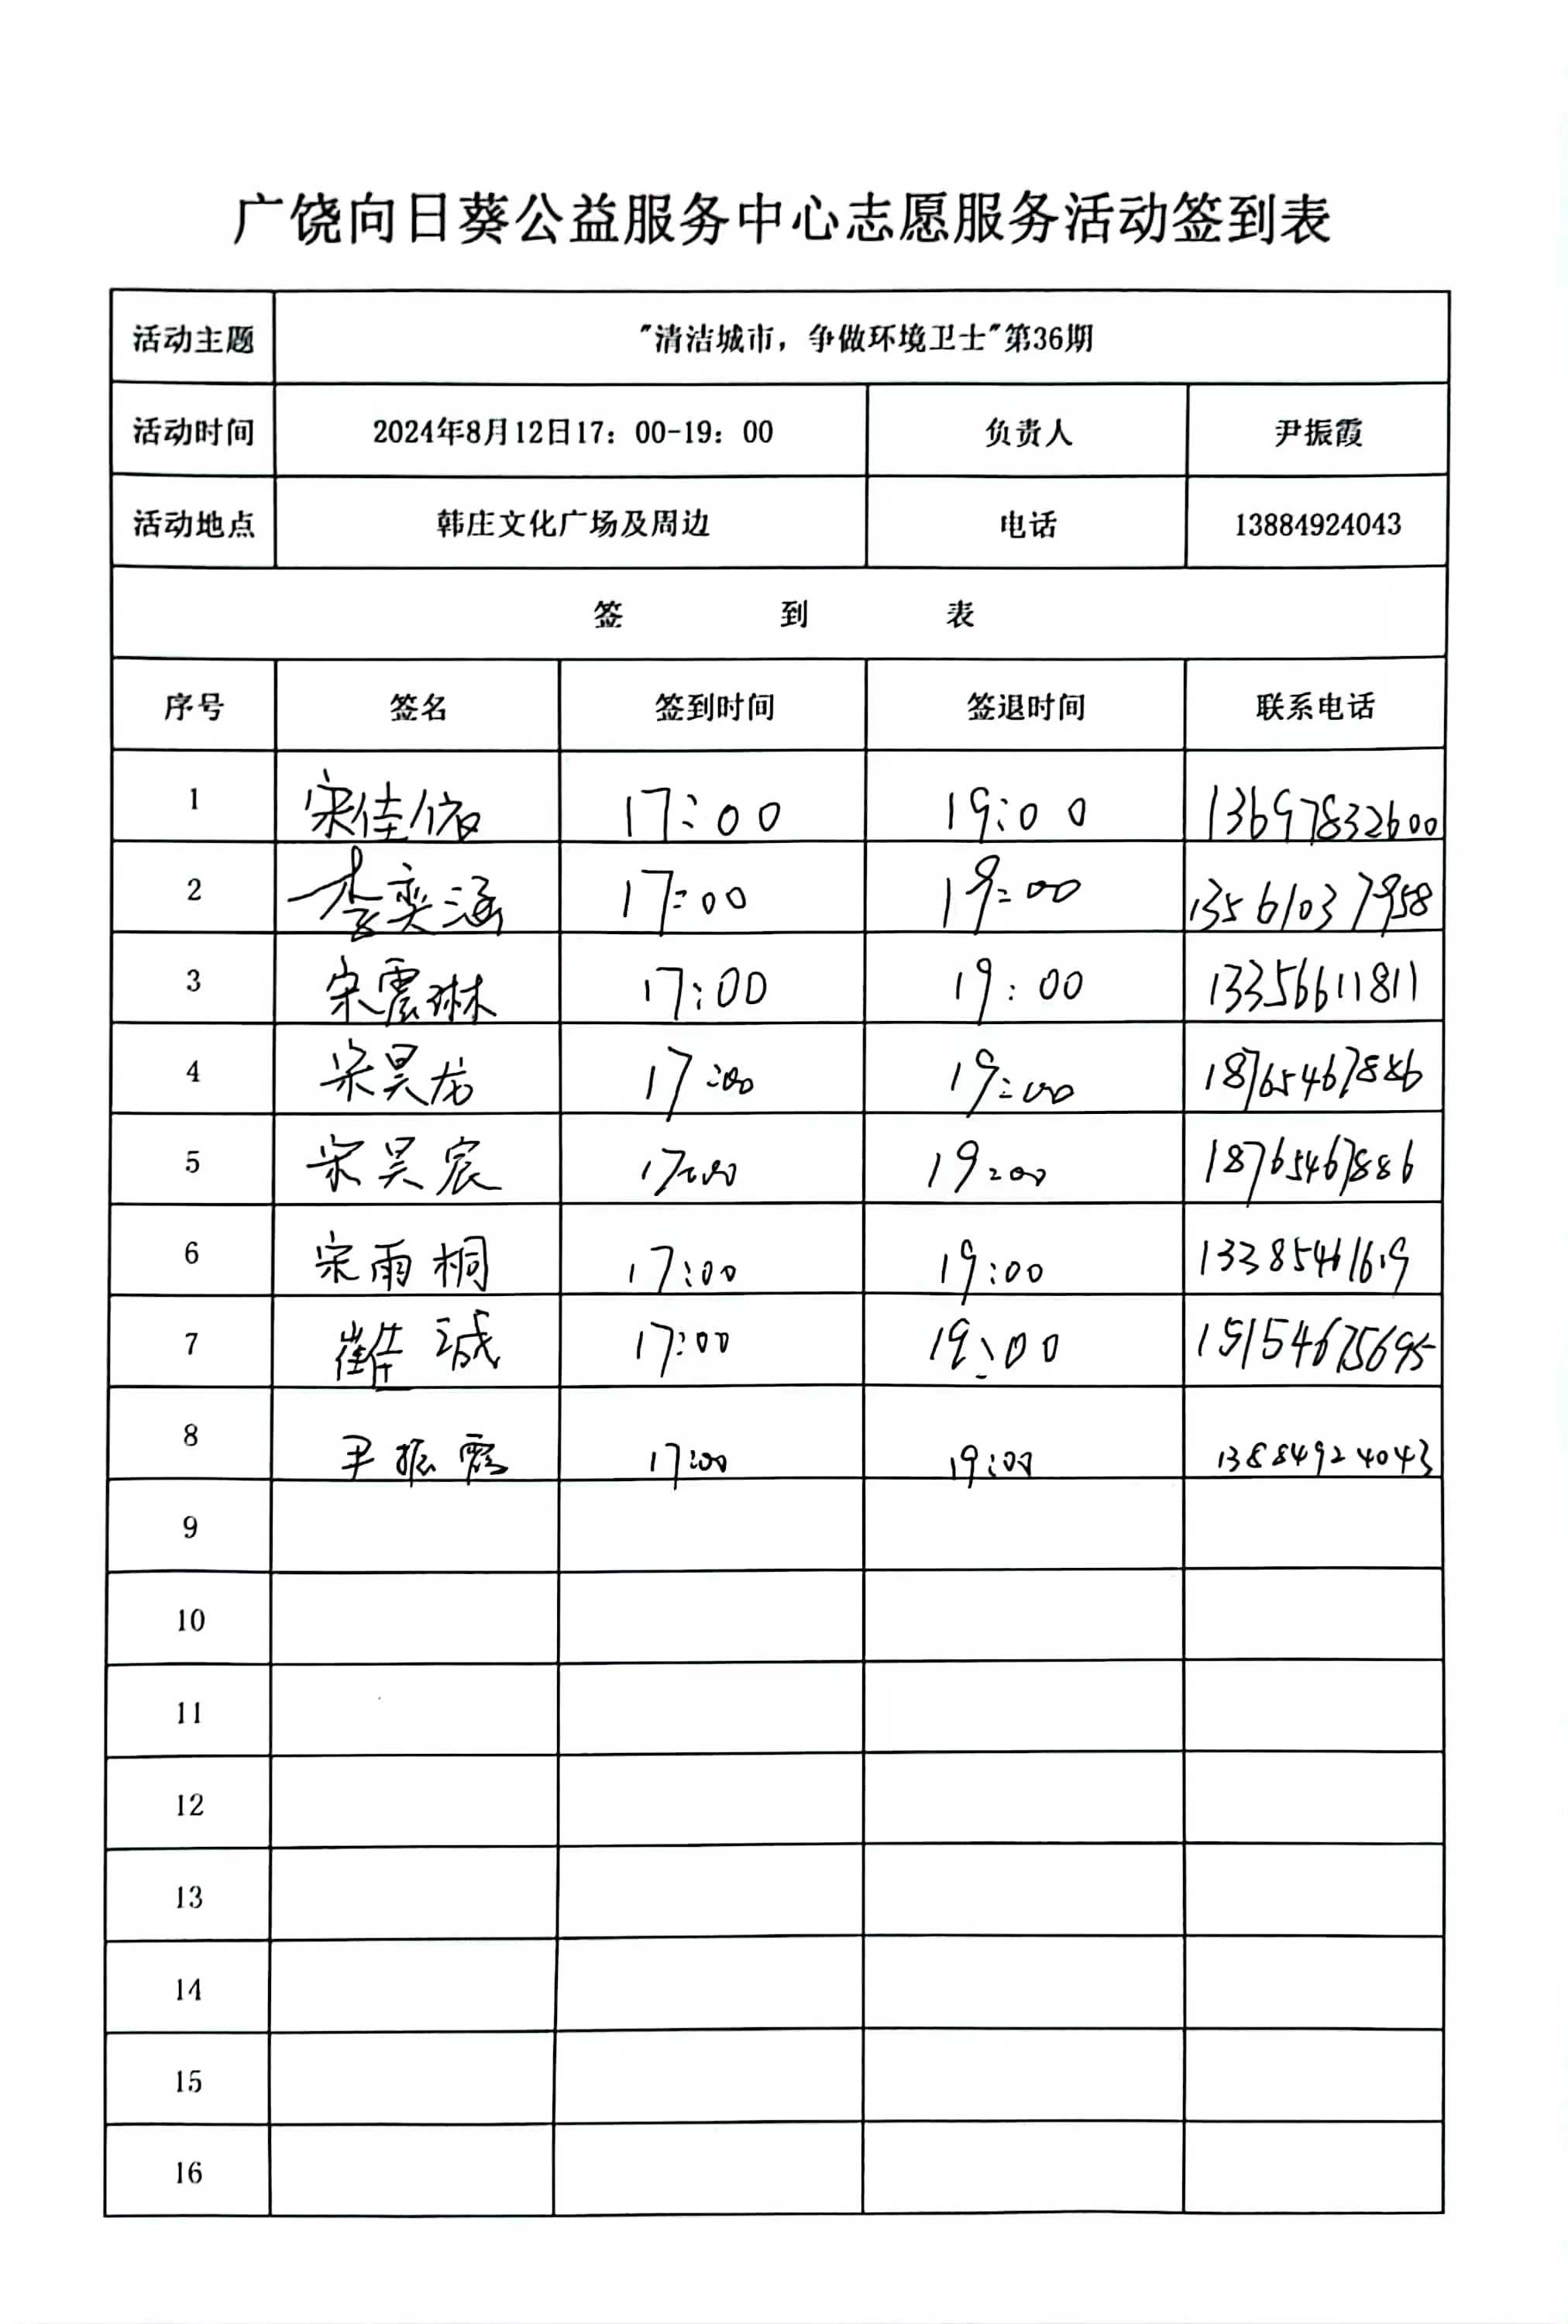 广饶向日葵公益服务中心志愿服务活动签到表
活动主题 "清洁城市，争做环境卫士"第36期
活动时间 2024年8月12日17：00-19：00 负责人 尹振霞
活动地点 韩庄文化广场及周边 电话 13884924043
签 到 表
序号 签名 签到时间 签退时间 联系电话
1 宋佳依 17:00 19:00 13697832600
2 李奕涵 17:00 19:00 13561037958
3 宋震琳 17:00 19:00 13356611811
4 宋昊龙 17:00 19:00 18765467886
5 宋昊宸 17:00 19:00 18765467886
6 宋雨桐 17:00 19:00 13385461619
7 崔佳诚 17:00 19:00 15154675695
8 尹振霞 17:00 19:00 13884924043
9
10
11
12
13
14
15
16